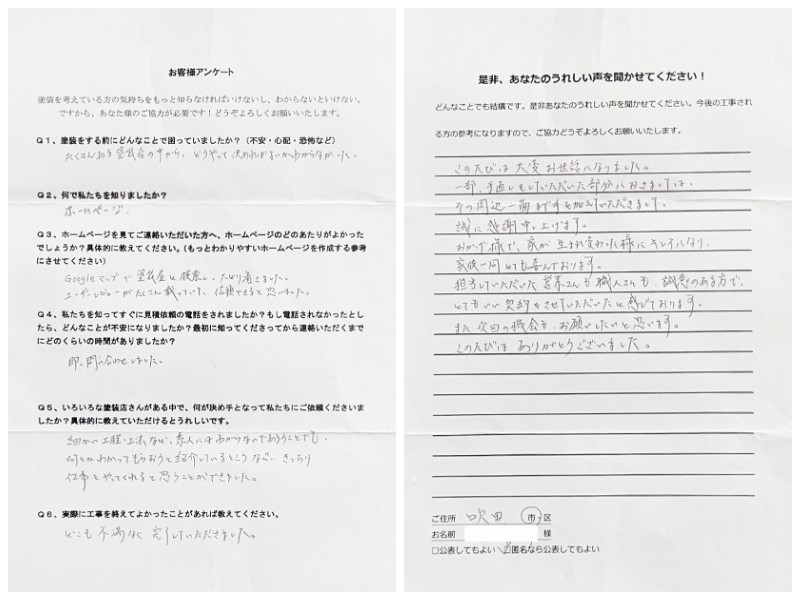 お客様アンケート
塗装を考えている方の気持ちをもっと知らなければいけないし、わからないといけない。
ですから、あなた様のご協力が必要です！どうぞよろしくお願いいたします。
Q1、塗装をする前にどんなことで困っていましたか？（不安・心配・恐怖など）
たくさんある塗装店の中から、どうやって決めればよいかわからなかった。
Q2、何で私たちを知りましたか？
ホームページ。
Q3、ホームページを見てご連絡いただいた方へ、ホームページのどのあたりがよかった
でしょうか？具体的に教えてください。（もっとわかりやすいホームページを作成する参考
にさせてください）
Googleマップで塗装屋と検索し、たどり着きました。
ユーザーレビューがたくさん載っていて、信頼できると思いました。
Q4、私たちを知ってすぐに見積依頼の電話をされましたか？もし電話されなかったとし
たら、どんなことが不安になりましたか？最初に知ってくださってから連絡いただくまで
にどのくらいの時間がありましたか？
即、問い合わせしました。
Q5、いろいろな塗装店さんがある中で、何が決め手となって私たちにご依頼くださいま
したか？具体的に教えていただけるとうれしいです。
細かい工程・工法など、素人にはわからないであろうことでも、
何とかわかってもらおうと紹介しているところなどに、きっちり
仕事をやってくれると思うことができました。
Q6、実際に工事を終えてよかったことがあれば教えてください。
どこも不満なく完了していただきました。
是非、あなたのうれしい声を聞かせてください！
どんなことでも結構です。是非あなたのうれしい声を聞かせてください。今後の工事され
る方の参考になりますので、ご協力どうぞよろしくお願いいたします。
このたびは大変お世話になりました。
一部、手直しをしていただいた部分におきましては、
その周辺一面まで手を加えていただきまして、
誠に感謝申し上げます。
おかげ様で、家が生まれ変わった様にキレイになり、
家族一同とても喜んでおります。
担当していただいた営業さんも職人さんも、誠意のある方で、
とてもいい契約をさせていただいたと感じております。
また次回の機会も、お願いしたいと思います。
このたびはありがとうございました。
ご住所 吹田 市・区
お名前 様
□公表してもよい ☑匿名なら公表してもよい